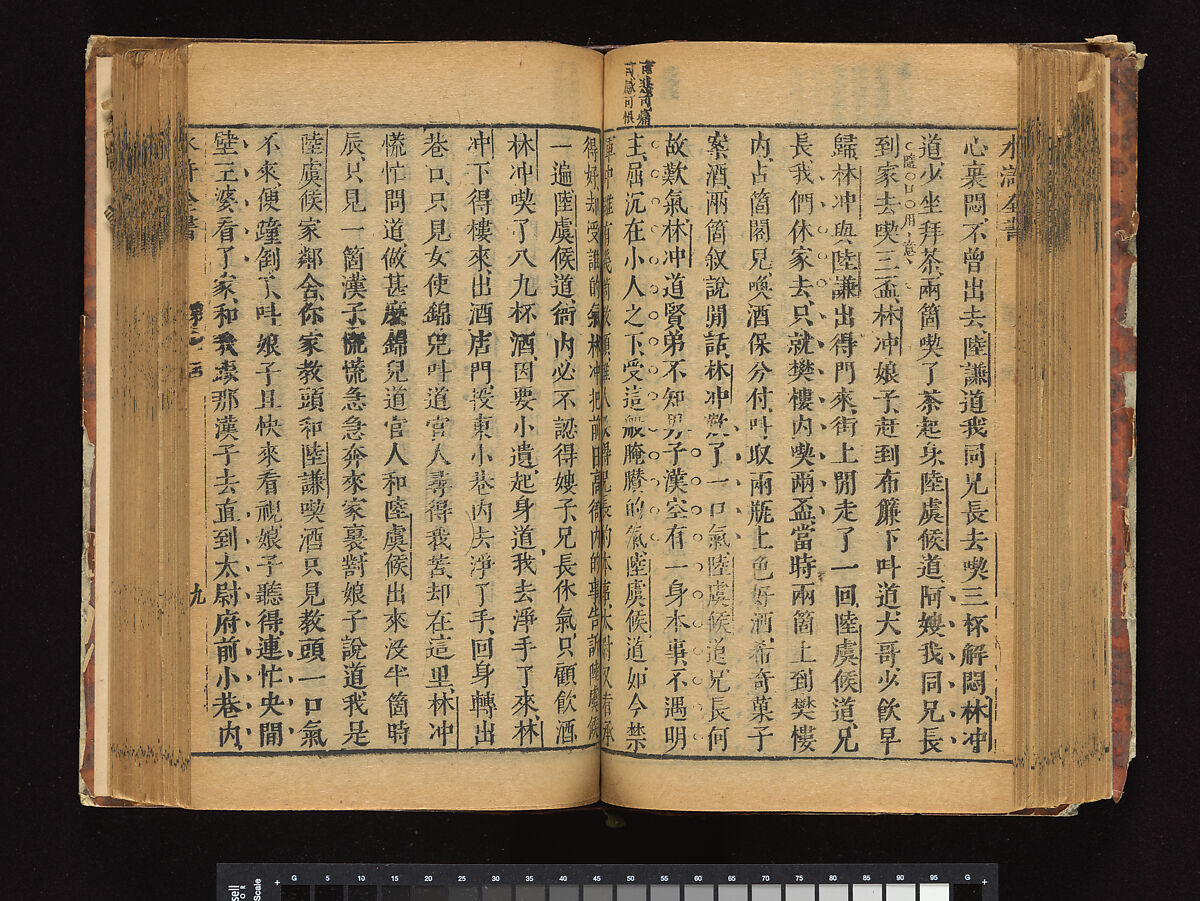 可悲可痛
可感可恨
水滸全書
心裏悶不曾出去陸謙道我同兄長去喫三杯解悶林冲
道少坐拜茶兩箇喫了茶起身陸虞候道阿嫂我同兄長
到家去喫三盃林冲娘子赶到布簾下叫道大哥少飲早
歸林冲與陸謙出得門來街上閒走了一回陸虞候道兄
長我們休家去只就樊樓内喫兩盃當時兩箇上到樊樓
内占箇閣兒喚酒保分付叫取兩瓶上色好酒希奇菓子
案酒兩箇叙說閒話林冲歎了一口氣陸虞候道兄長何
故歎氣林冲道賢弟不知男子漢空有一身本事不遇明
主屈沉在小人之下受這般腌臢的氣陸虞候道如今禁
得好却受誰的氣林冲把前日高衙内的事告訴陸虞候
一遍陸虞候道衙内必不認得嫂子兄長休氣只顧飲酒
林冲喫了八九杯酒因要小遺起身道我去淨手了來林
冲下得樓來出酒店門投東小巷内去淨了手回身轉出
巷口只見女使錦兒叫道官人尋得我苦却在這里林冲
慌忙問道做甚麽錦兒道官人和陸虞候出來没半箇時
辰只見一箇漢子慌慌急急奔來家裏對娘子說道我是
陸虞候家鄰舍你家教頭和陸謙喫酒只見教頭一口氣
不來便蹱倒了叫娘子且快來看視娘子聽得連忙央間
壁王婆看了家和我跟那漢子去直到太尉府前小巷内
九